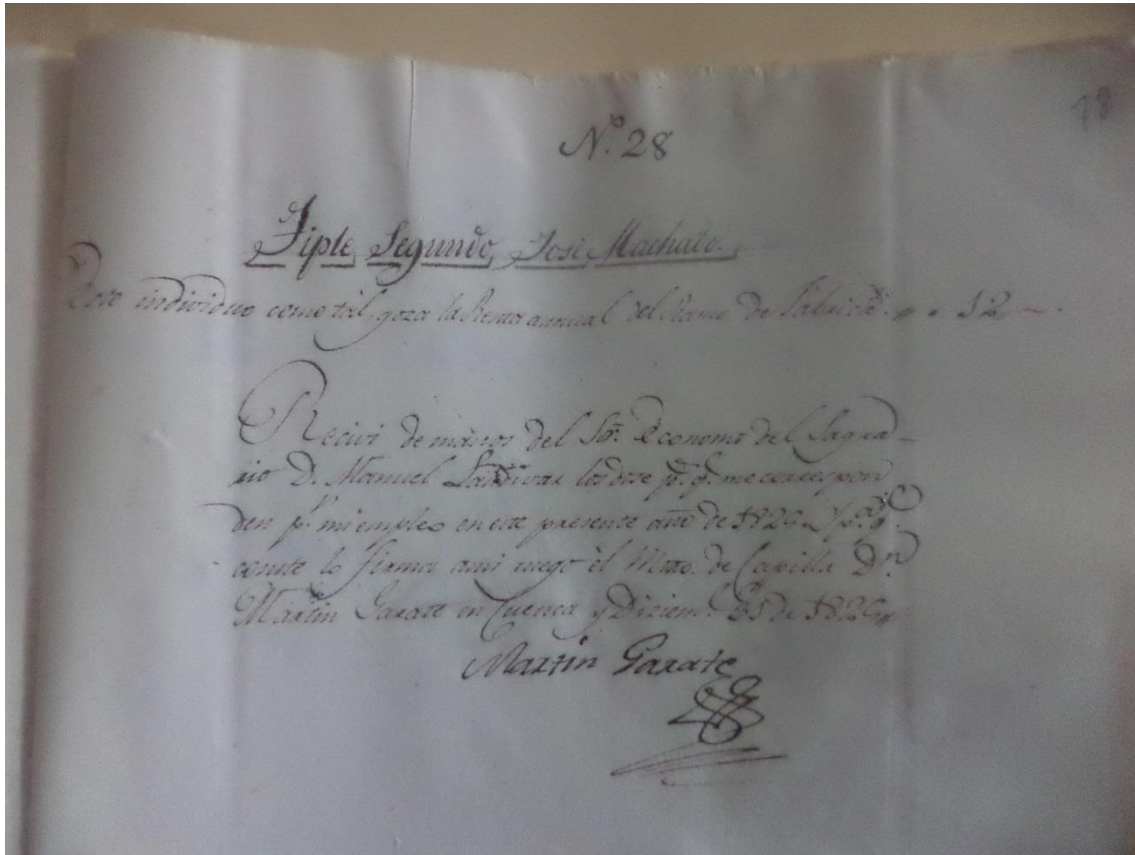 18
Nº. 28
Tiple Segundo, Jose Machuto.
Este individuo como tál, goza la Renta annual del Ramo de Fabrica. 12
Recivi de manos del Sõr. Economo del Sagra-
rio D. Manuel los dose pˢ. q. me correspon
den pʳ. mi empleo en este presente año de 182 . Y pª. q.ᵉ
conste lo firma ami ruego él Mtro. de Capilla Dⁿ.
Martin Garate en Cuenca y Diziem.ᵉ de 182
Martin Garate